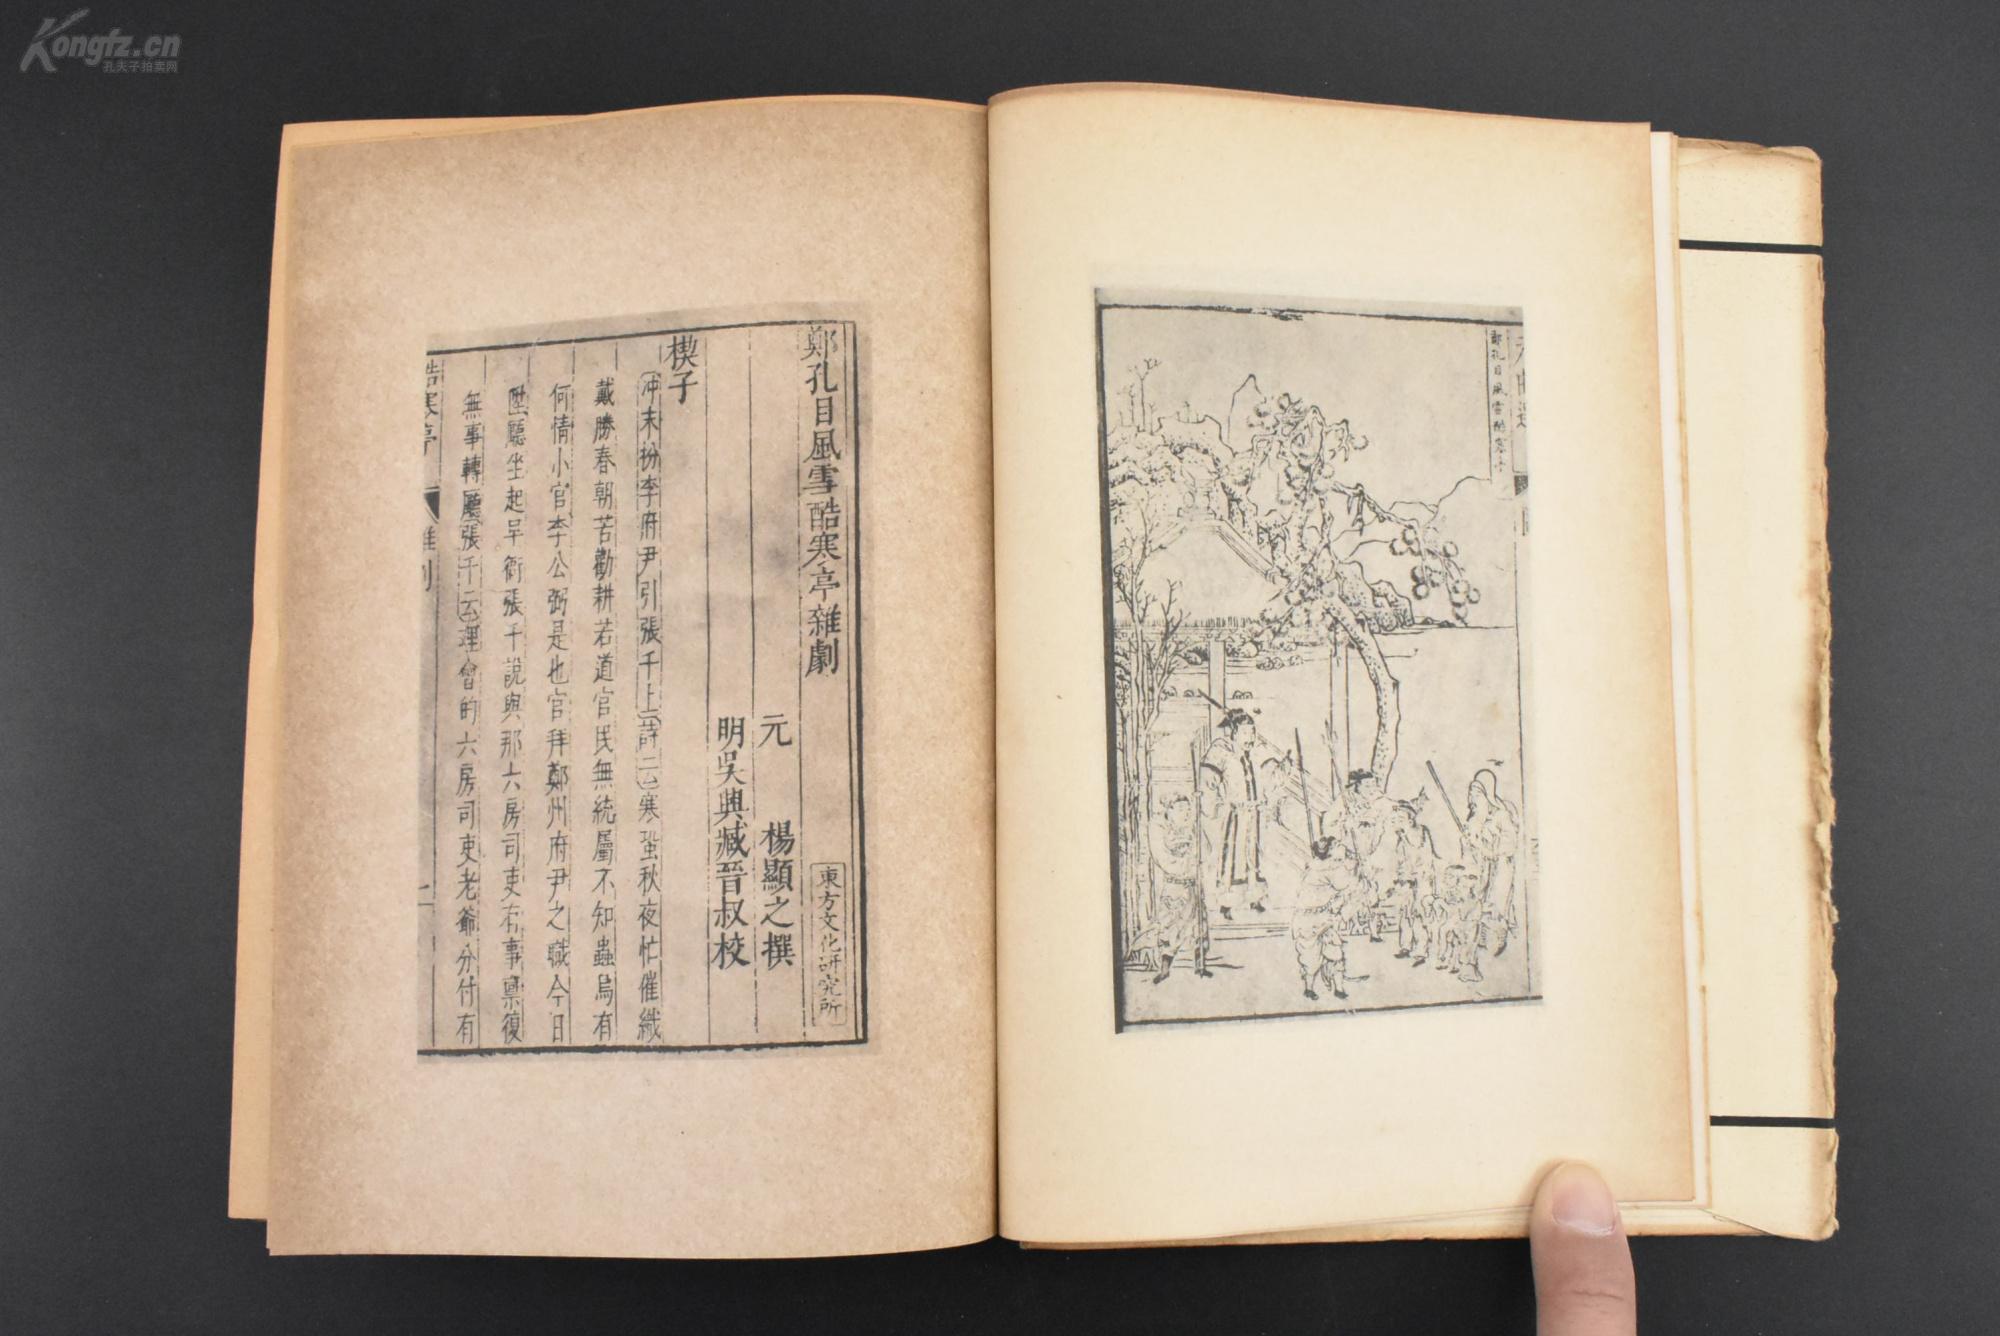 Kongfz.cn
孔夫子拍卖网
鄭孔目風雪酷寒亭
鄭孔目風雪酷寒亭雜劇
元 楊顯之撰
明吳興臧晉叔校
東方文化研究所
楔子
冲末扮李府尹引張千上詩云寒蛩秋夜忙催織
戴勝春朝苦勸耕若道官民無統屬不知蟲鳥有
何情小官李公弼是也官拜鄭州府尹之職今日
陞廳坐起早衙張千說與那六房司吏有事禀復
無事轉廳張千云理會的六房司吏老爺分付有
酷寒亭 雜劇 一